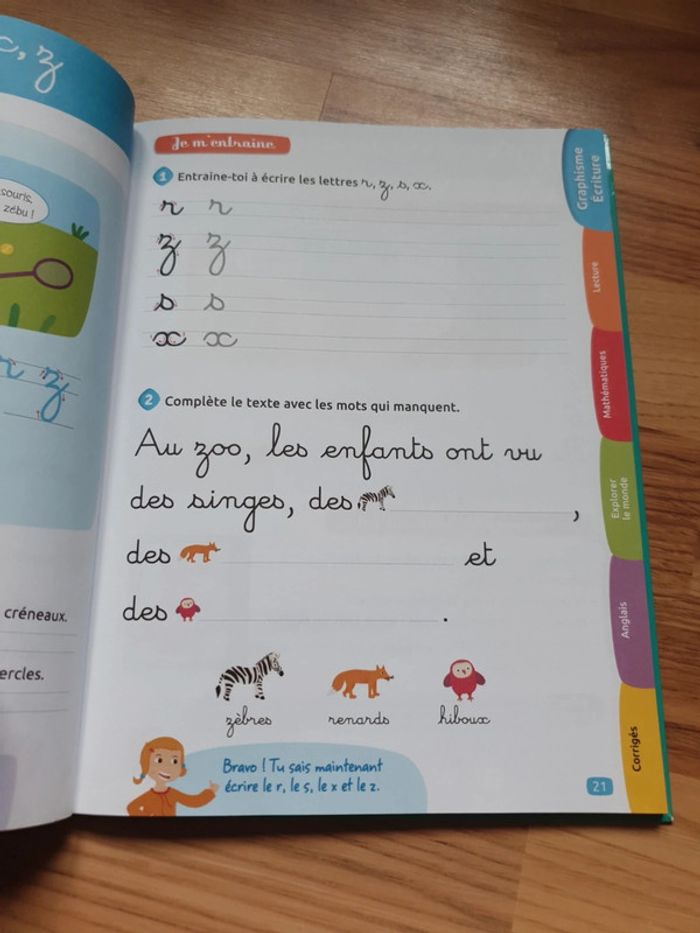 z
souris,
zébu !
z
créneaux.
ercles.
Je m'entraine
1 Entraine-toi à écrire les lettres r, z, s, x.
r r
z z
s s
x x
2 Complète le texte avec les mots qui manquent.
Au zoo, les enfants ont vu
des singes, des ,
des et
des .
zèbres renards hiboux
Bravo ! Tu sais maintenant
écrire le r, le s, le x et le z.
21
Graphisme
Écriture
Lecture
Mathématiques
Explorer
le monde
Anglais
Corrigés